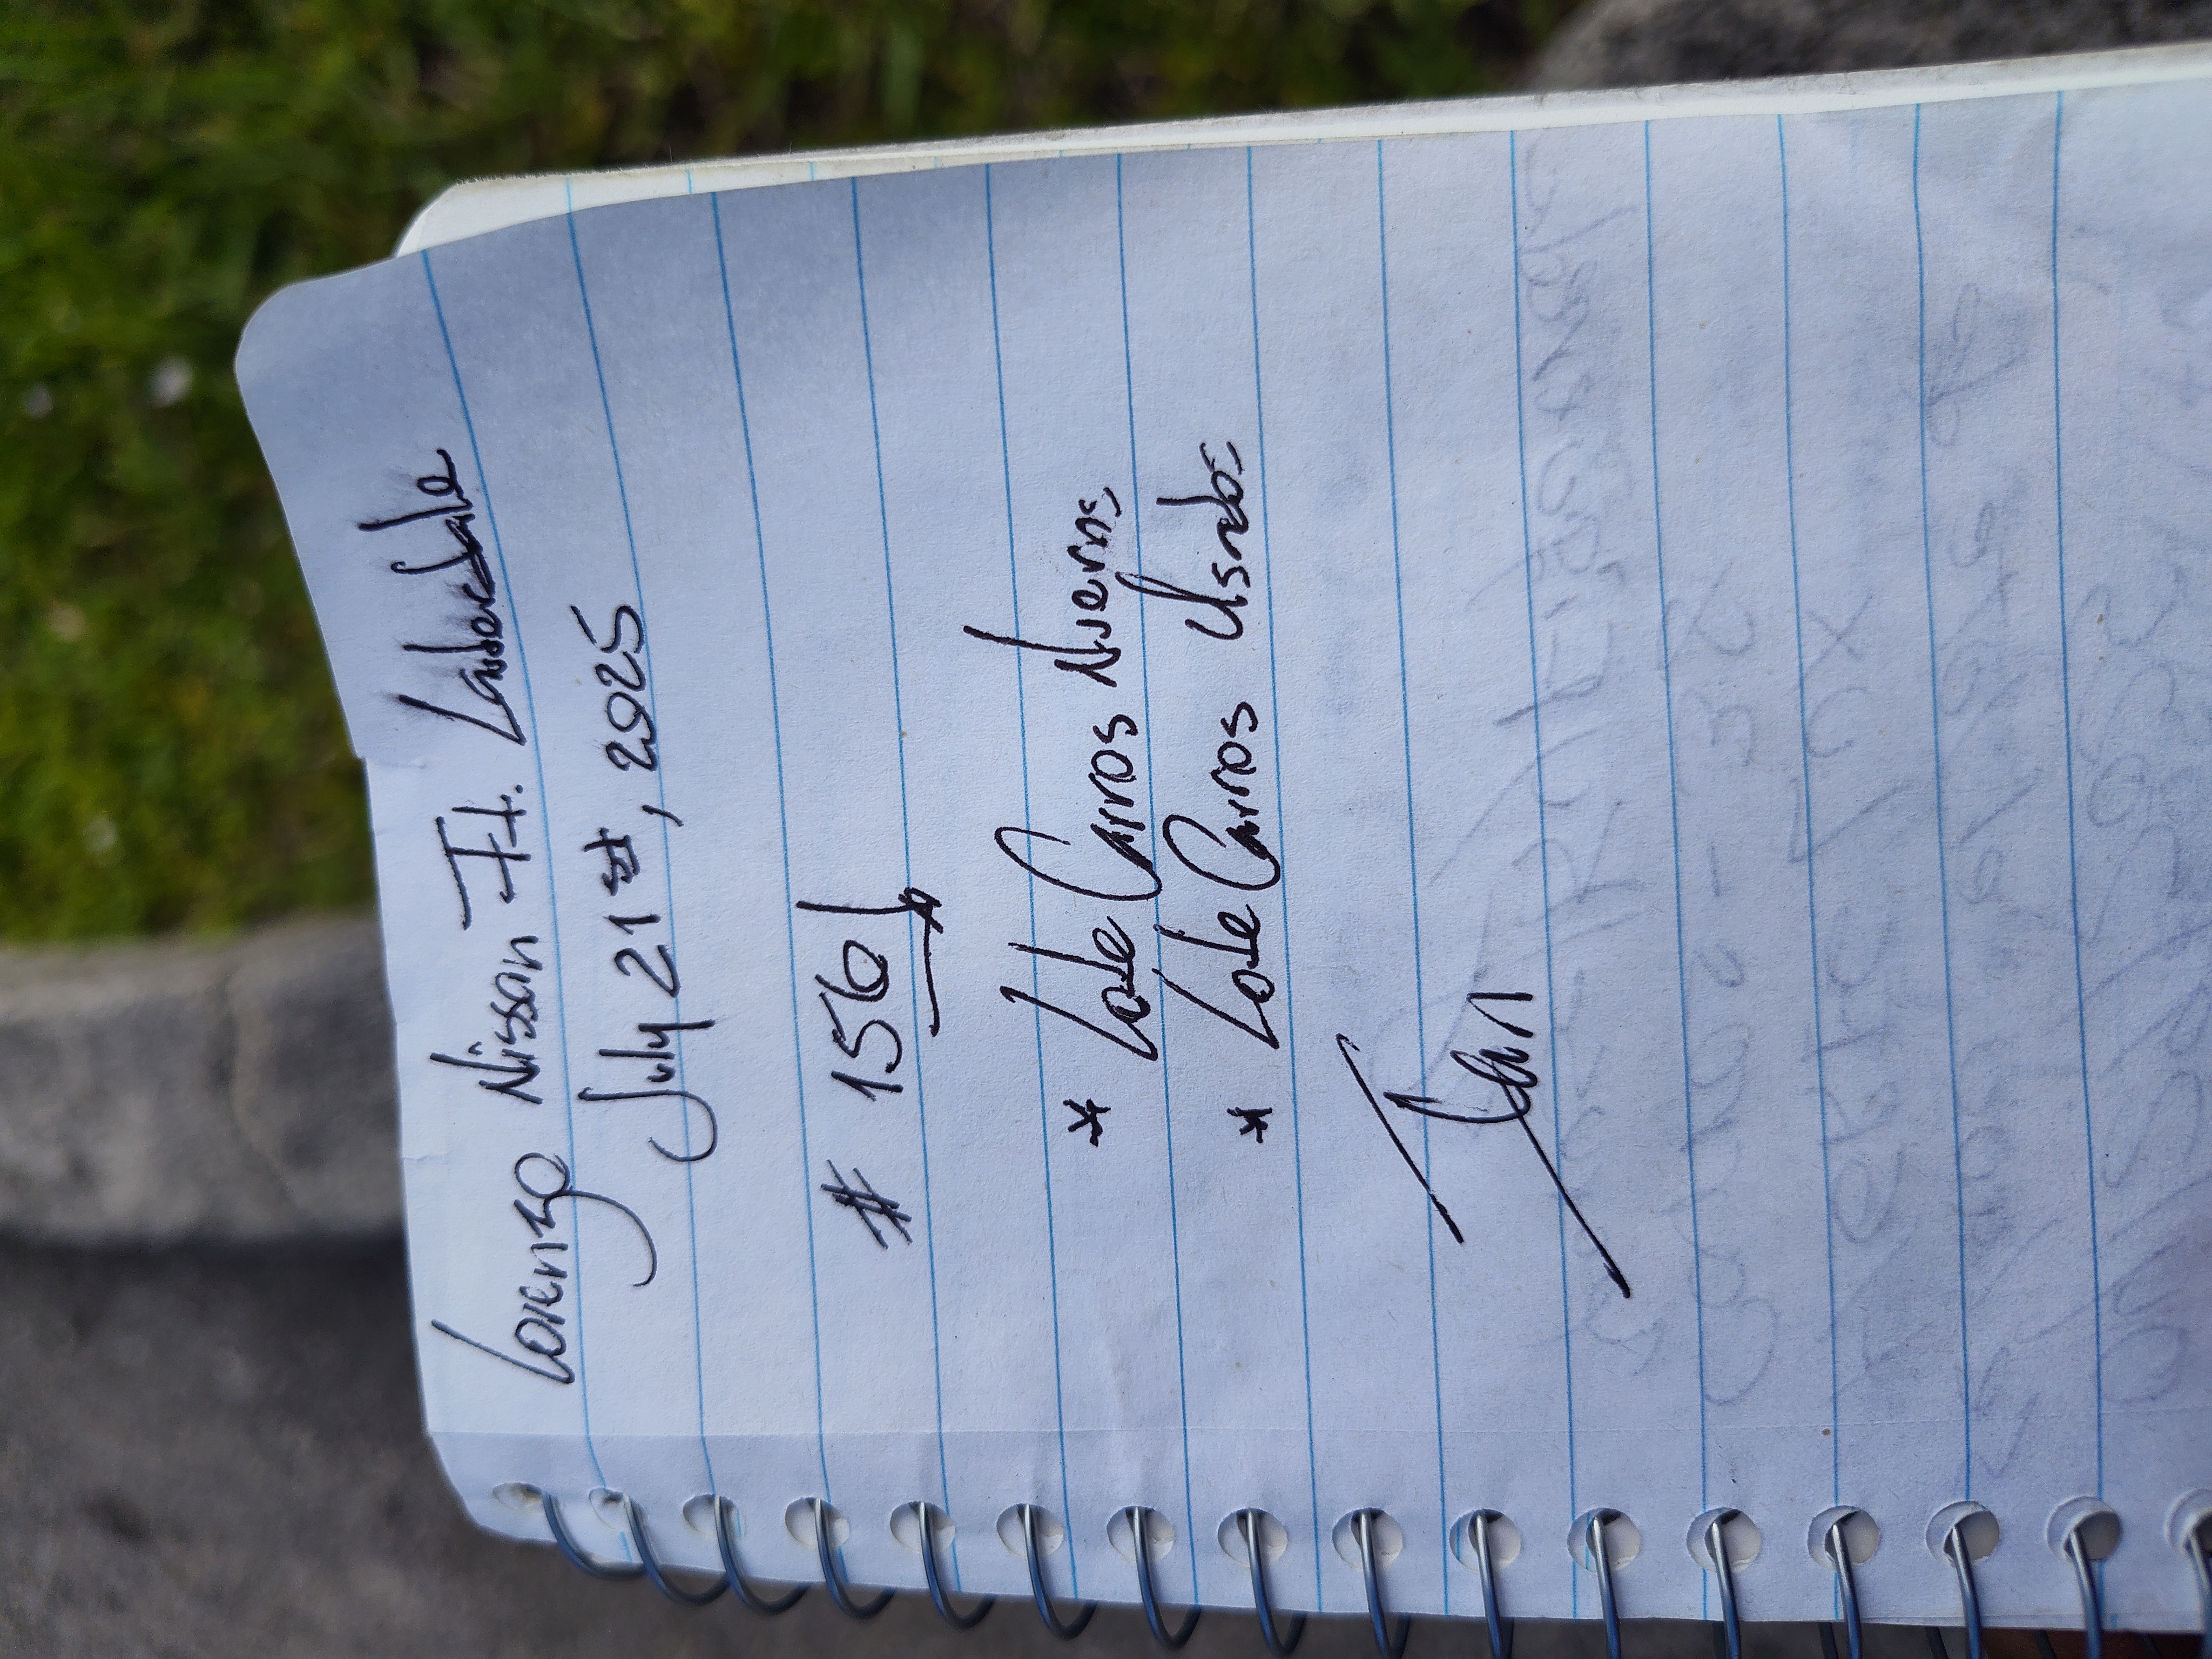 Lorenzo Nissan Ft. Lauderdale
July 21st, 2025
# 156
* Lote Carros Nuevos
* Lote Carros Usados